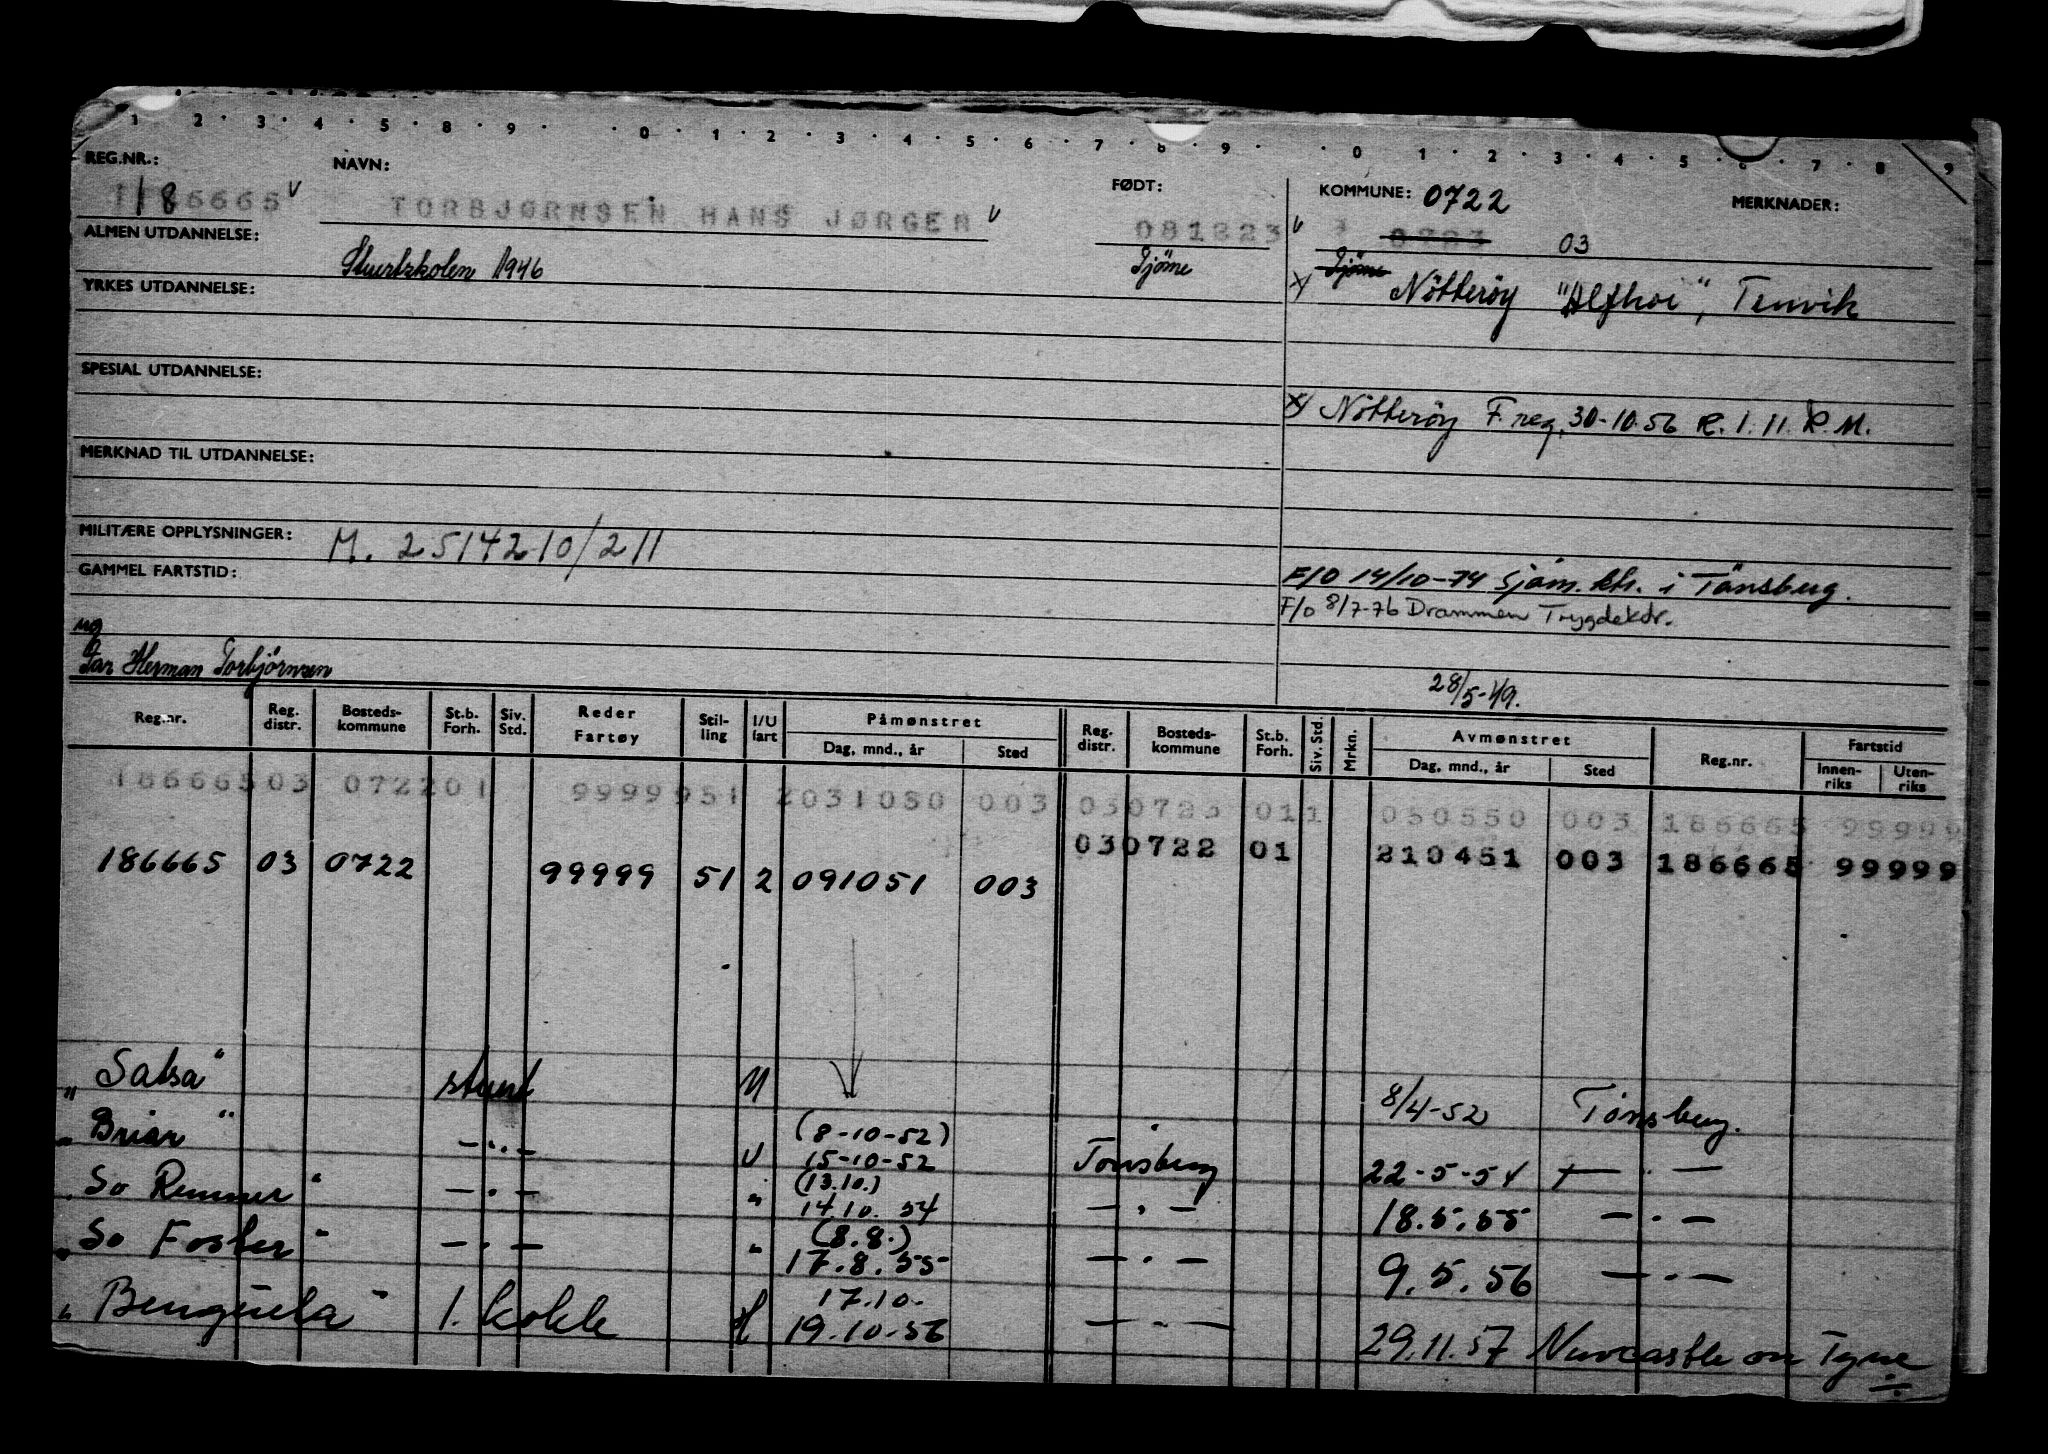 1 2 · 3 · 4 · 5 · 8 · 9 · · 0 · 1 · 2 · 3 · 4 · 5 · 6 · 7 · 8 · 9 · · 0 · 1 · 2 · 3 · 4 · 5 · 6 · 7 · 8 · 9
REG.NR.: NAVN: FØDT: KOMMUNE: 0722 MERKNADER:
186665 v TORBJØRNSEN HANS JØRGEN v 081823 v 03
ALMEN UTDANNELSE: Stuertskolen 1946 Tjöme Tjöme
x) Nötteröy "Alfhoi", Tenvik
YRKES UTDANNELSE:
SPESIAL UTDANNELSE:
x) Nötteröy F.reg. 30-10.56 R. 1. 11. R.M.
MERKNAD TIL UTDANNELSE:
MILITÆRE OPPLYSNINGER: M. 2514210/211
GAMMEL FARTSTID:
F/O 14/10-74 sjöm.ktr. i Tönsberg.
F/o 8/7-76 Drammen Trygdektr.
ug
Far Herman Torbjörnsen
28/5-49.
Reg.nr. Reg. distr. Bosteds-kommune St.b. Forh. Siv. Std. Reder Fartøy Stil-ling I/U fart Påmønstret Dag, mnd., år Sted Reg. distr. Bosteds-kommune St.b. Forh. Siv. Std. Mrkn. Avmønstret Dag, mnd., år Sted Reg.nr. Fartstid Innen-riks Uten-riks
186665 03 0722 01 99999 51 2 031050 003 03 0723 01 1 050550 003 186665 99999
03 0722 01 210451 003 186665 99999
186665 03 0722 99999 51 2 091051 003
"Salsa" stuert U 8/4-52 Tönsberg.
"Briar" -"- U (8-10-52) 15-10-52 Tönsberg 22-5-54 -"-
"So Renner" -"- " (13.10.) 14.10. 54 -"- 18.5.55 -"-
"So Foster" -"- " (8.8.) 17.8.55 -"- 9.5.56 -"-
"Benguela" 1. kokk 17.10. 19.10-56 -"- 29.11.57 Newcastle on Tyne